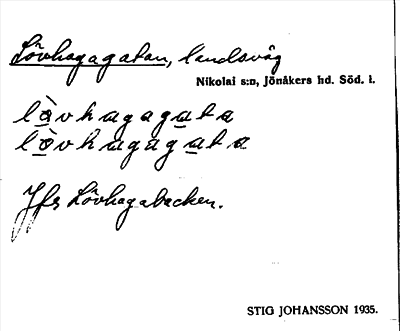 Lövhagagatan, landsväg
Nikolai s:n, Jönåkers hd. Söd. l.
lò̱vhagaga̱ta
lò̱vhagaga̱ta
Jfr Lövhagabacken.
STIG JOHANSSON 1935.